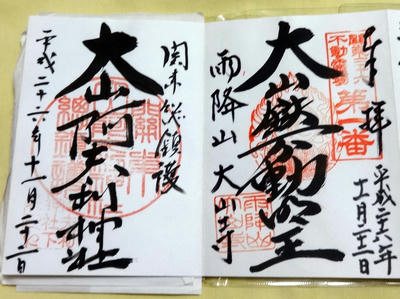 奉拝
関東三十六不動霊場
第一番
平成二六年
十一月二十二日
大山不動明王
雨降山 大山寺
関東総鎮護
大山阿夫利神社
平成二十六年十一月二十二日